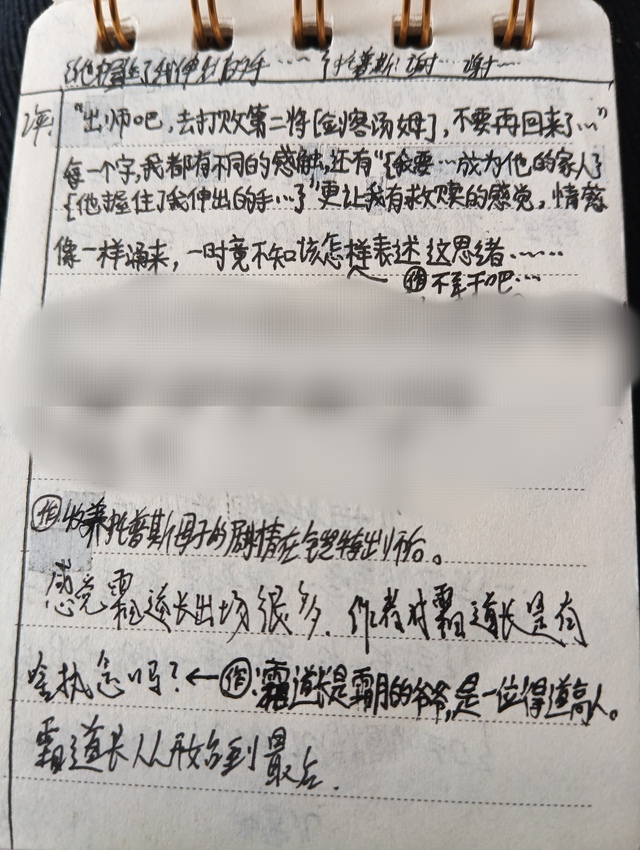 {他握住了我伸出的手……} 托普斯：谢……谢……
评："出师吧，去打败第二将[剑客汤姆]，不要再回来了…"
每一个字，我都有不同的感触，还有"{我要…成为他的家人}
{他握住了我伸出的手…}"更让我有救赎的感觉，情感
像一样涌来，一时竟不知该怎样表述这思绪……
作 不至于吧…
作 收养托普斯母子的剧情在 出师后。
感觉霜道长出场很多，作者对霜道长是有
啥执念吗？←作：霜道长是霜月的爷爷，是一位得道高人。
霜道长从开始到最后.